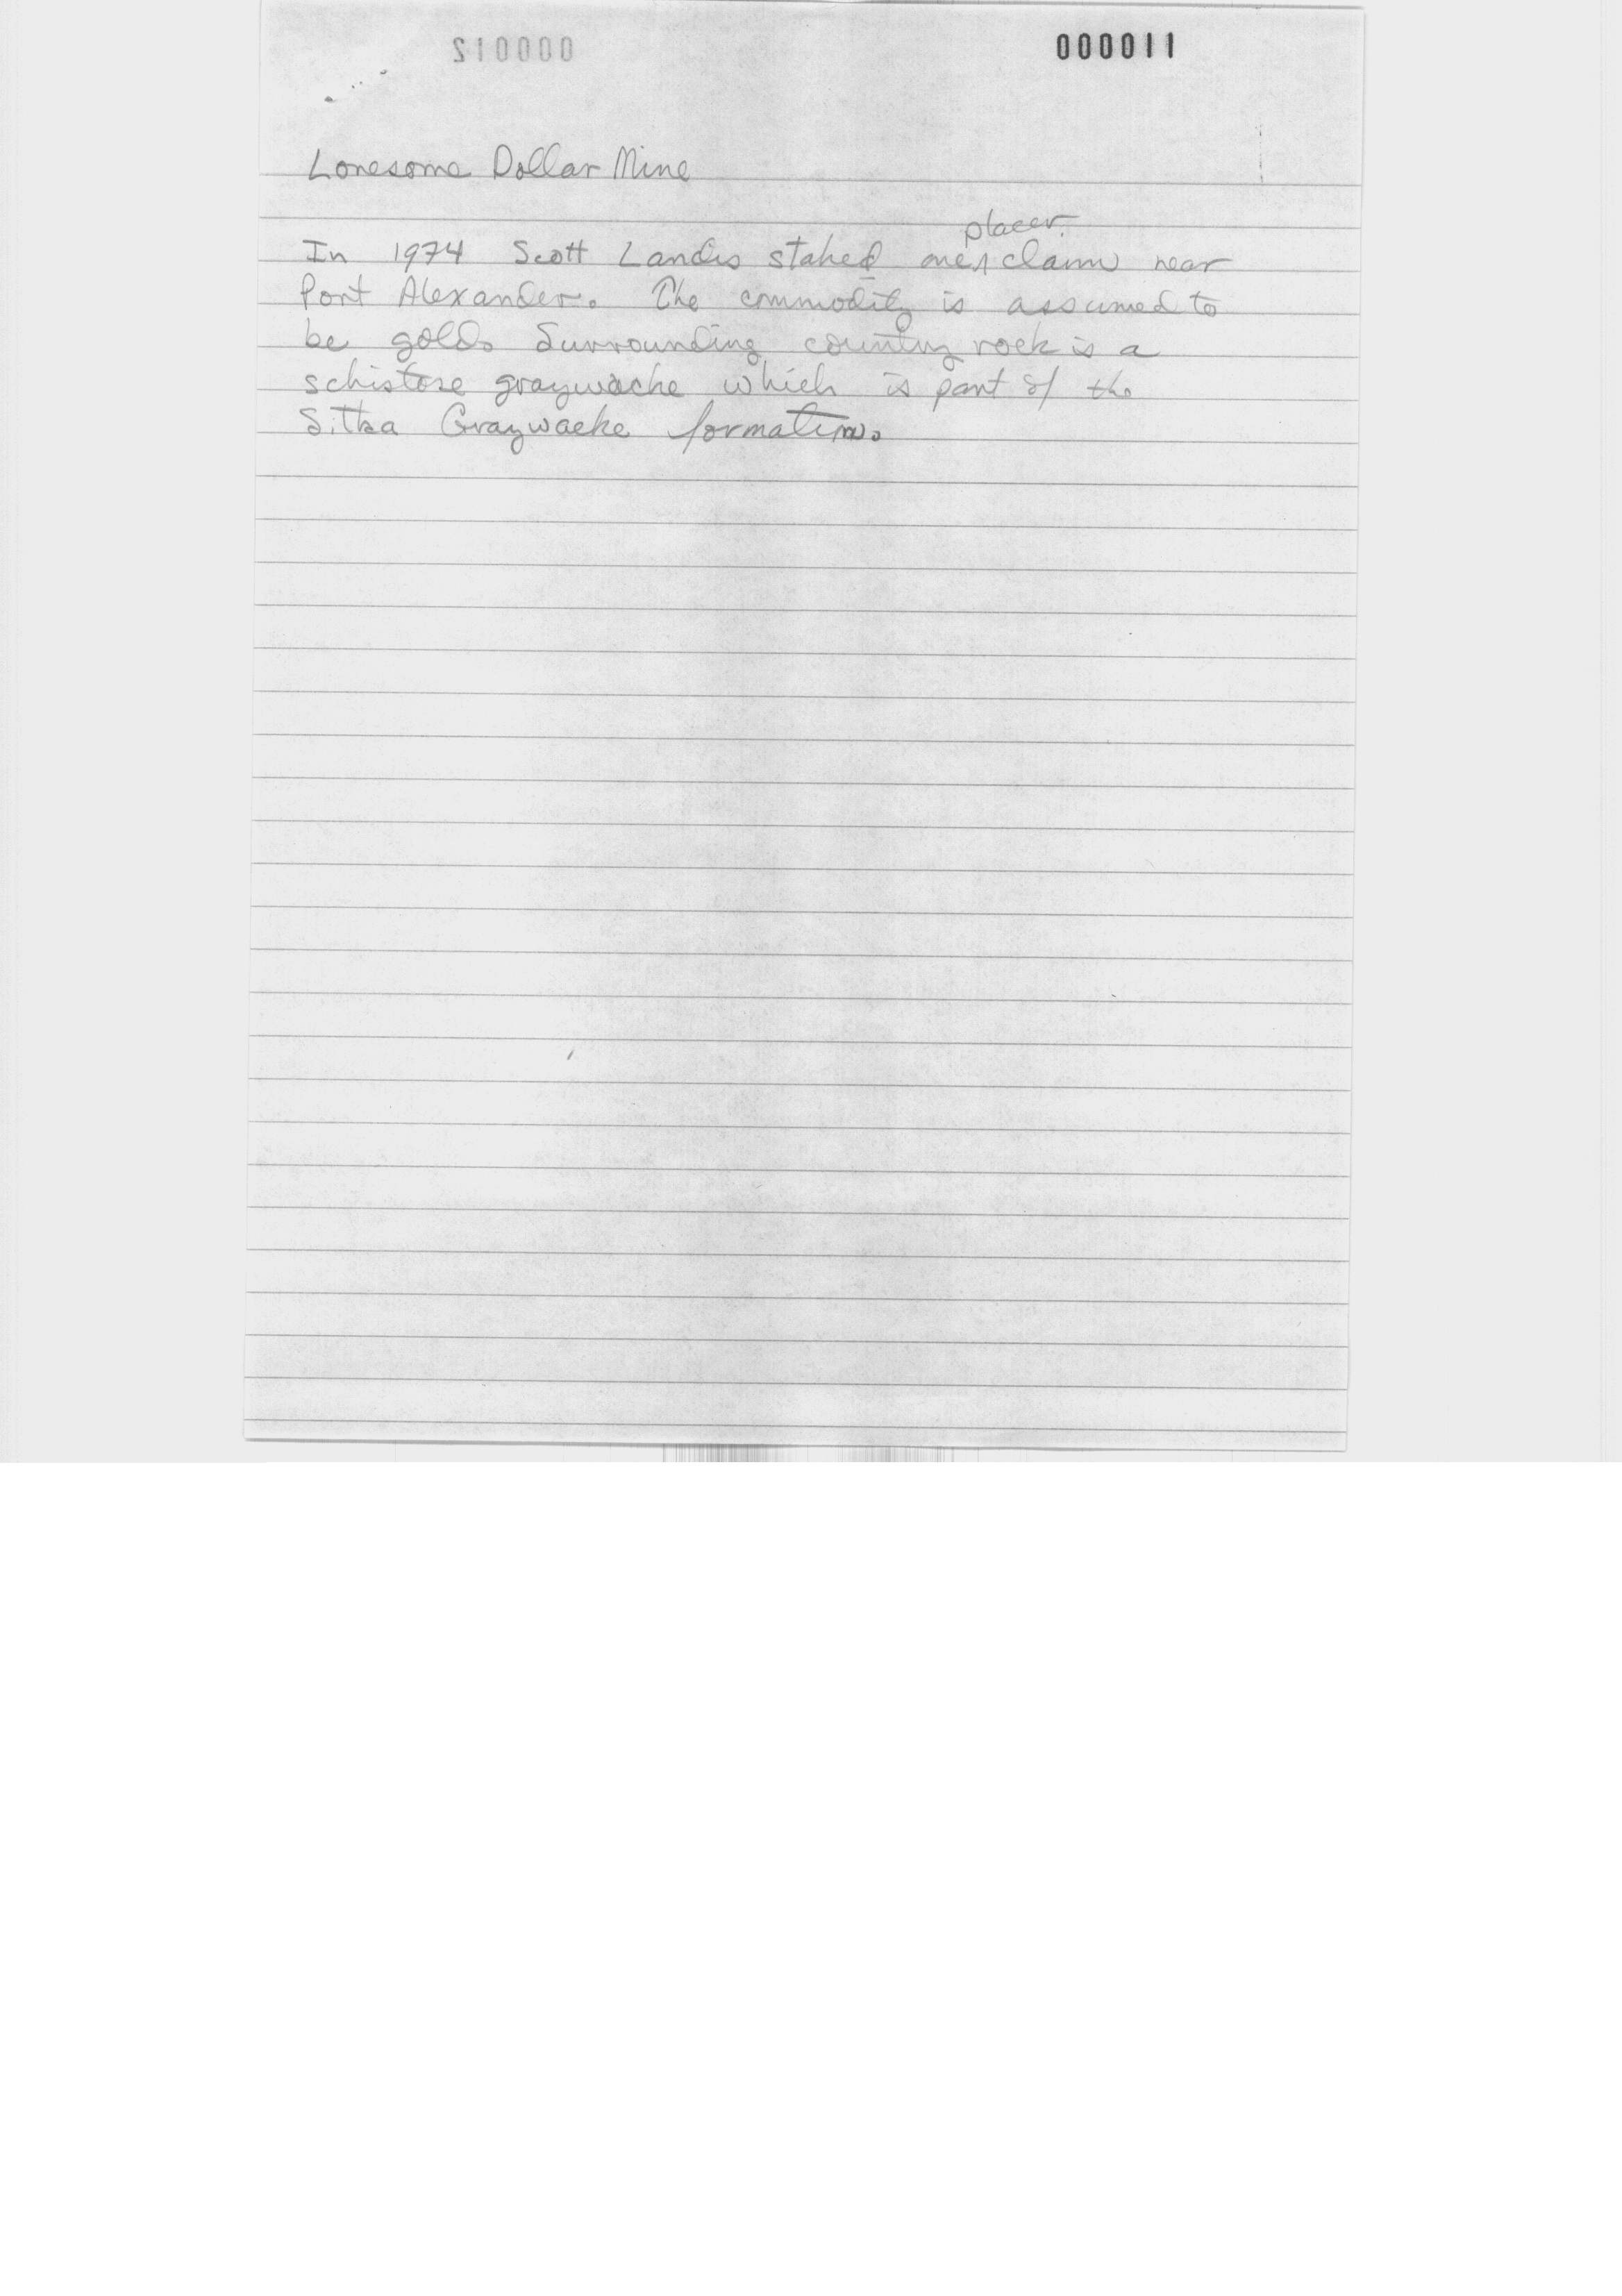 000011
Lonesome Dollar Mine
In 1974 Scott Landis staked one placer claim near
Port Alexander. The commodity is assumed to
be gold. Surrounding country rock is a
schistose graywacke which is part of the
Sitka Graywacke formation.